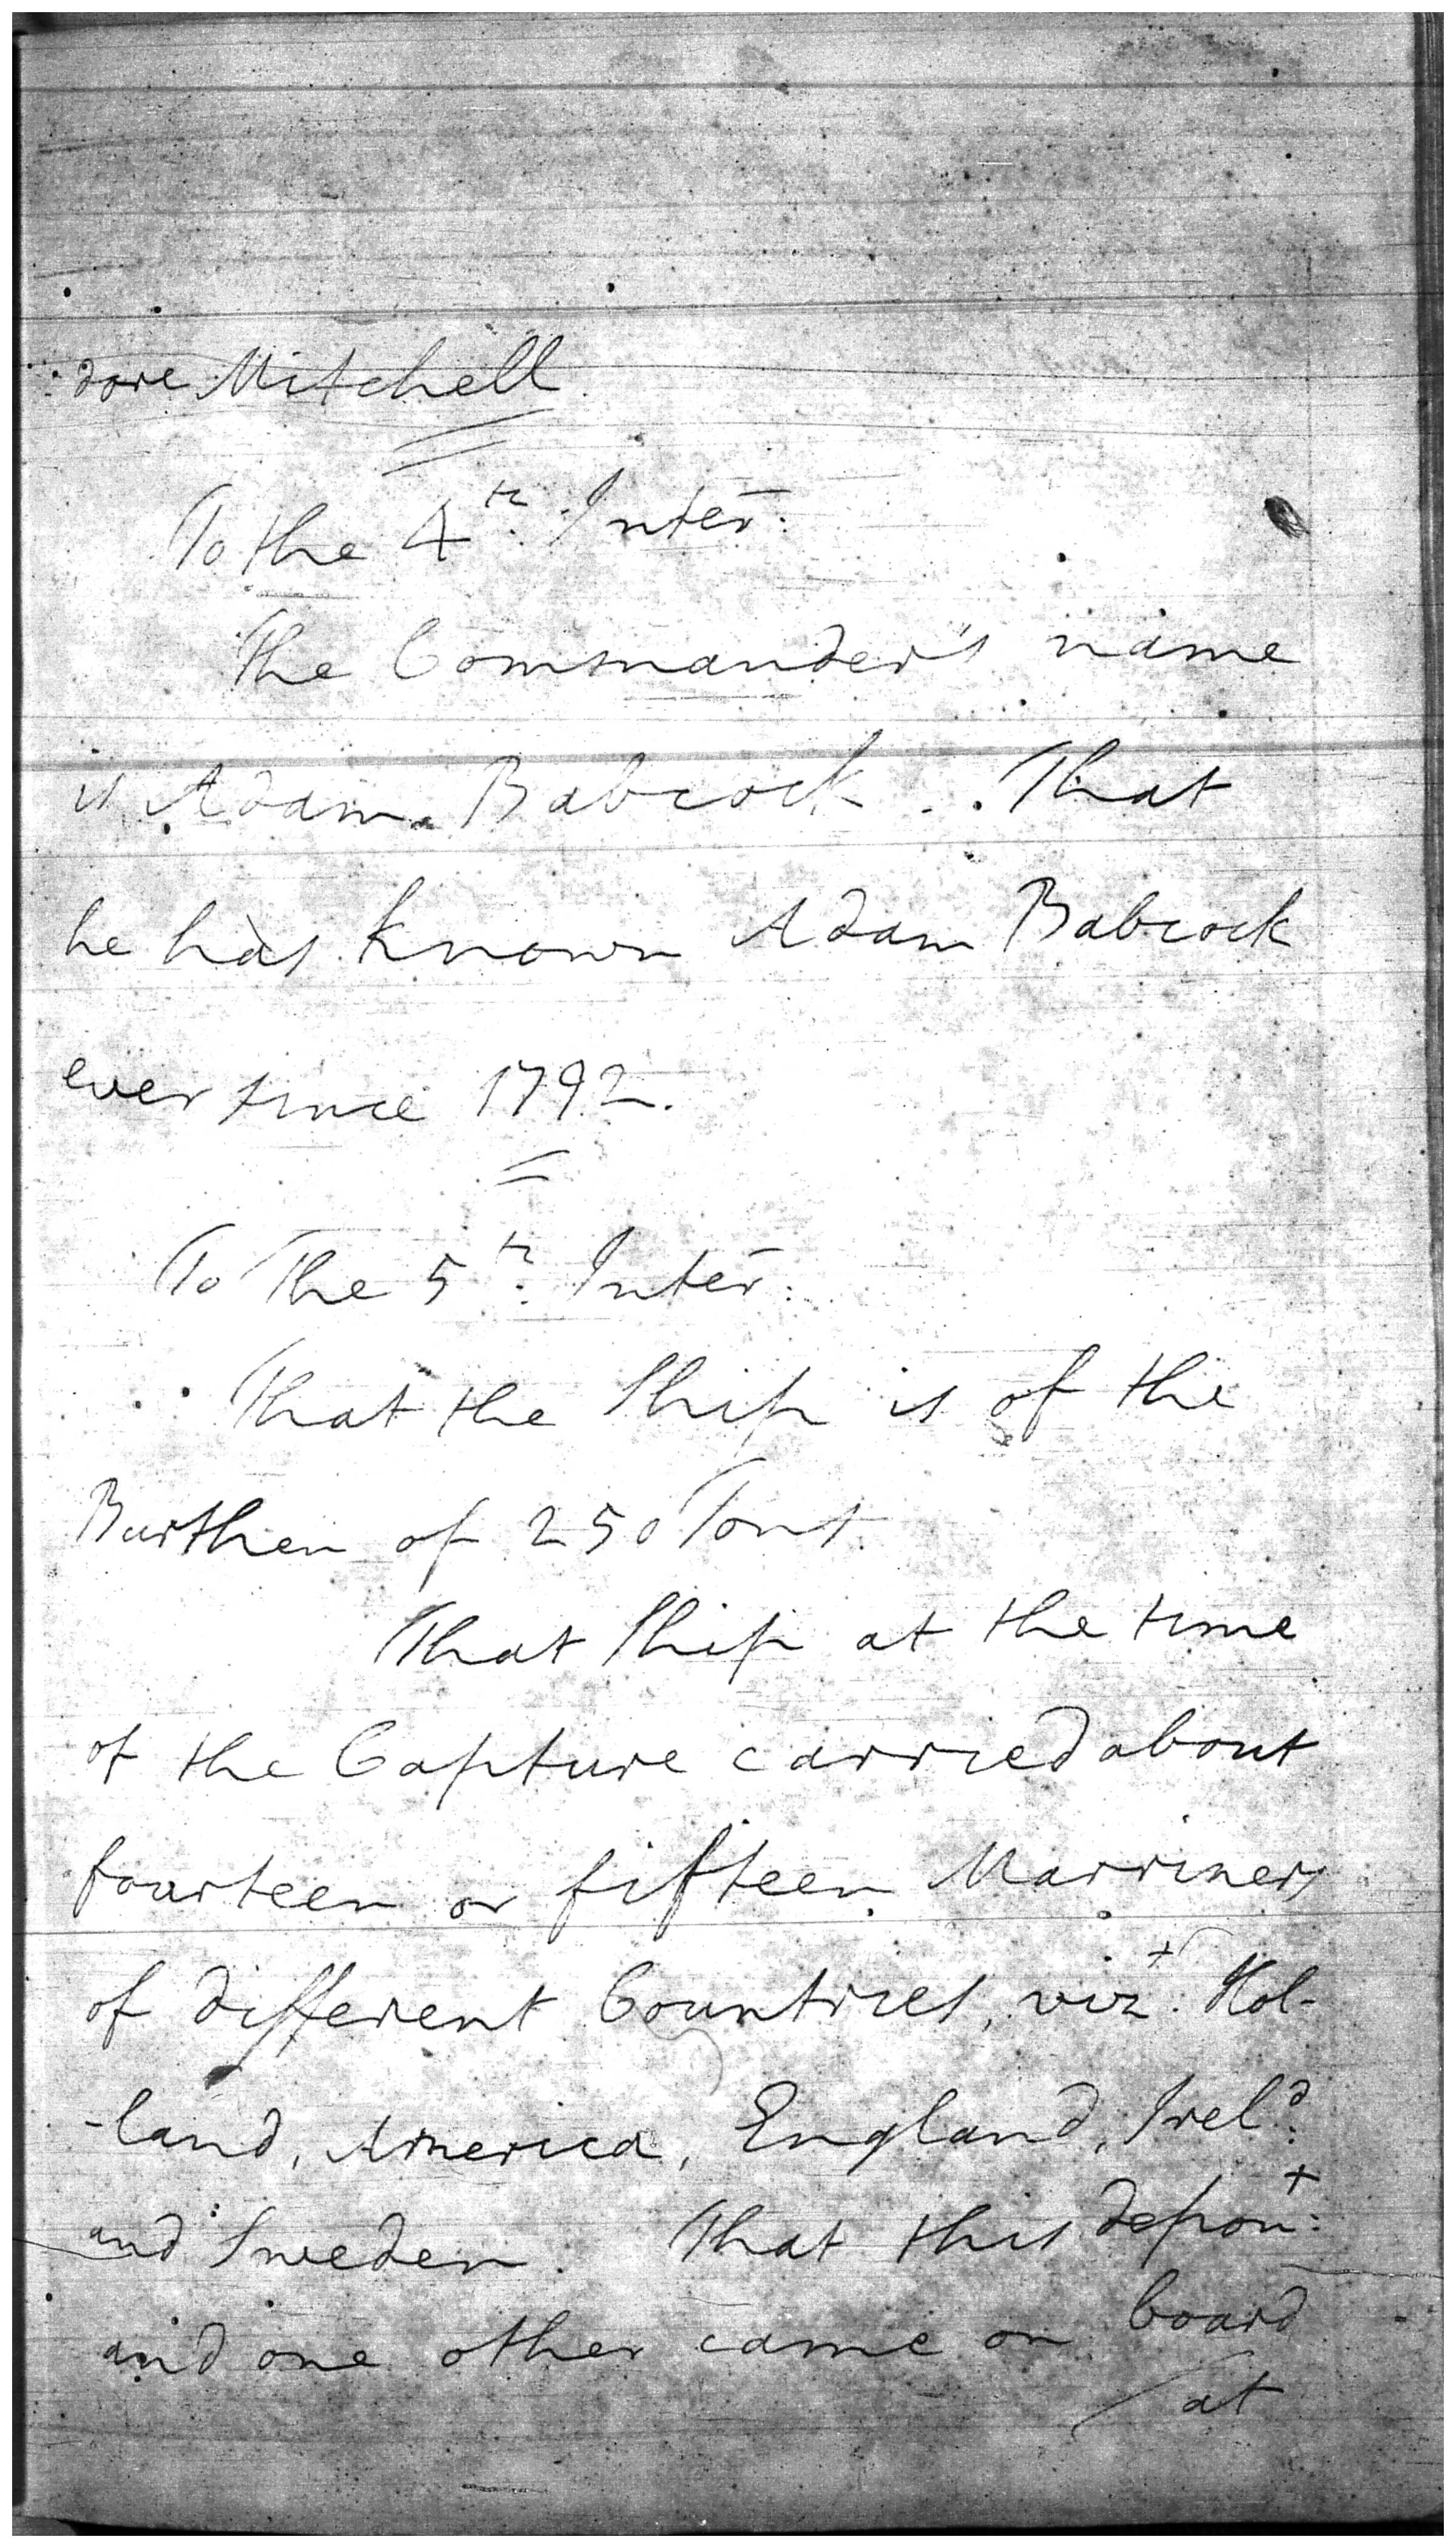 :dore Mitchell.
To the 4th. Inter:
The Commander's name
is Adam Babcock.. That
he has known Adam Babcock
ever since 1792.
To The 5th. Inter:
That the Ship is of the
Burthen of 250 Tons.
That Ship at the time
of the Capture carried about
fourteen or fifteen Marriners
of different Countries, vizt. Hol-
-land, America, England, Ireld:
and Sweden. That this depont:
and one other came on board
/at